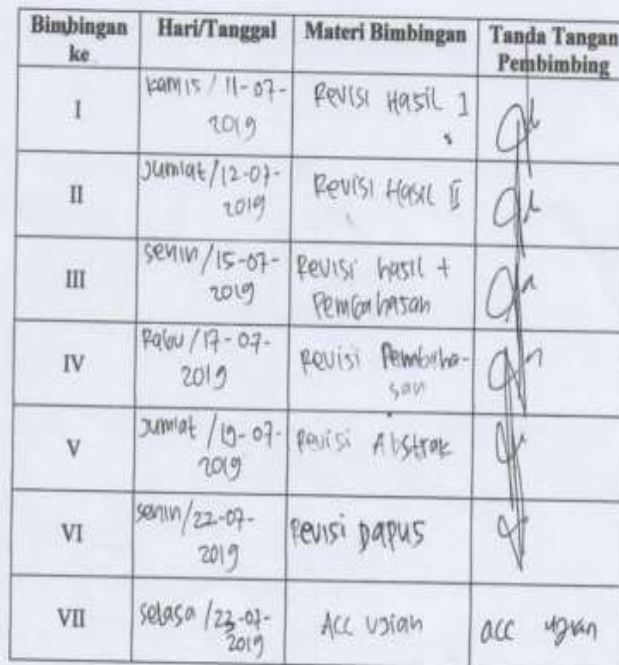 Bimbingan ke Hari/Tanggal Materi Bimbingan Tanda Tangan Pembimbing
I Kamis / 11-07-2019 Revisi Hasil I
II Jumlat / 12-07-2019 Revisi Hasil II
III Senin / 15-07-2019 Revisi hasil + Pembahasan
IV Rabu / 17-07-2019 Revisi Pembaha-san
V Jumlat / 19-07-2019 Revisi Abstrak
VI Senin / 22-07-2019 Revisi Dapus
VII Selasa / 23-07-2019 Acc Ujian acc ujian